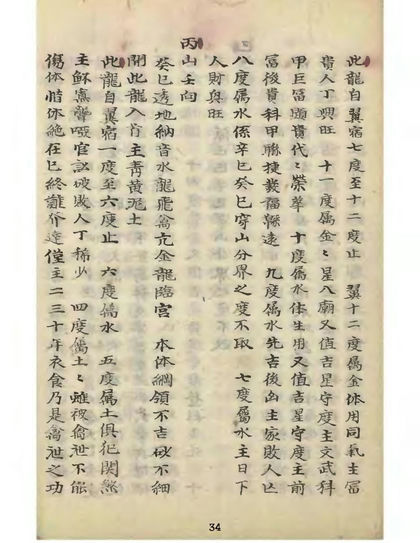 此龍自翼宿七度至十二度止　翼十二度屬金体用同氣主冨
貴人丁興旺　十一度屬金〻星入廟又值吉星守度主文武科
甲巨冨顕貴代〻榮華　十度屬水体生用又值吉星守度主前
冨後貴科甲聯捷發福綿遠　九度屬水先吉後凶主家敗人亡
八度屬水係辛巳癸巳穿山分界之度不取　七度屬水主日下
人財與旺
丙山壬向
癸巳透地納音水龍飛禽亢金龍臨宮　本体綱領不吉砍不細
開此龍入首主青黃泥土
此龍自翼宿一度至六度止　六度屬水　五度屬土俱犯関煞
主穌寡聲啞官訟破敗人丁稀少　四度屬土〻雖被禽泄不能
傷体惜休絶在巳終難齐達僅主二三十年衣食乃是禽泄之功
34